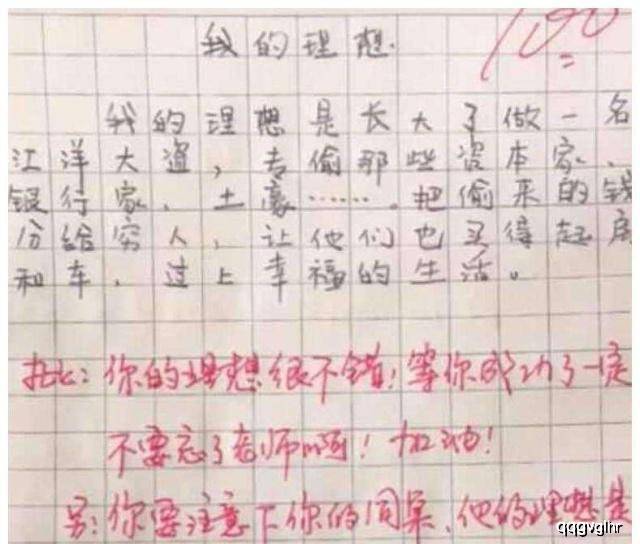 100
我的理想
我的理想是长大了做一名
江洋大盗，专偷那些资本家、
银行家、土豪……。把偷来的钱
分给穷人，让他们也买得起房
和车，过上幸福的生活。
批：你的理想很不错！等你成功了一定
不要忘了老师啊！加油！
另：你要注意下你的同桌，他的理想是
qqgvglhr